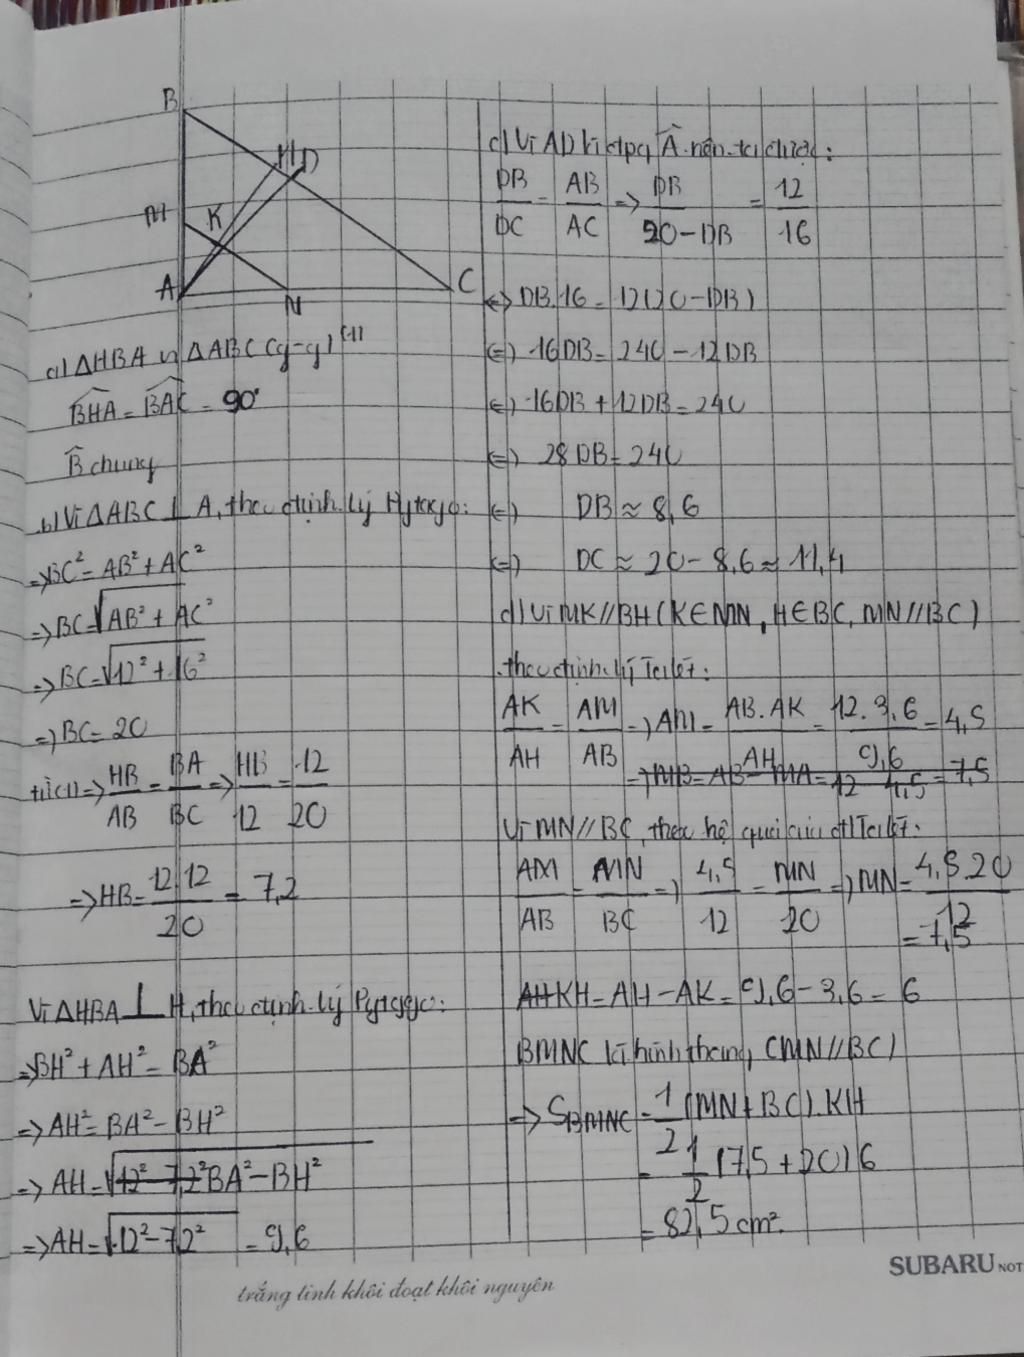 B
H D
M K
A N C
a) ΔHBA ∽ ΔABC (g-g) (1)
BHA = BAC = 90°
B̂ chung
b) Vì ΔABC ⊥ A, theo định lý Pytago:
=> BC² = AB² + AC²
=> BC = √AB² + AC²
=> BC = √12² + 16²
=> BC = 20
từ (1) => HB/AB = BA/BC => HB/12 = 12/20
=> HB = 12.12/20 = 7,2
Vì ΔHBA ⊥ H, theo định lý Pytago:
=> BH² + AH² = BA²
=> AH² = BA² - BH²
=> AH = √12² - 7,2² BA² - BH²
=> AH = √12² - 7,2² = 9,6
c) Vì AD là đpg Â nên ta được:
DB/DC = AB/AC => DB/20-DB = 12/16
<=> DB.16 = 12(20-DB)
<=> 16DB = 240 - 12DB
<=> 16DB + 12DB = 240
<=> 28DB = 240
<=> DB ≈ 8,6
<=> DC ≈ 20 - 8,6 ≈ 11,4
d) Vì MK//BH (K∈MN, H∈BC, MN//BC)
theo định lý Talét:
AK/AH = AM/AB => AM = AB.AK/AH = 12.3,6/9,6 = 4,5
=> MB = AB - MA = 12 4,5 = 7,5
Vì MN//BC, theo hệ quả của đl Talét:
AM/AB = MN/BC => 4,5/12 = MN/20 => MN = 4,5.20/12
= 7,5
AH KH = AH - AK = 9,6 - 3,6 = 6
BMNC là hình thang (MN//BC)
=> SBMNC = 1/2 (MN + BC).KH
= 1/2 (7,5 + 20) 6
= 82,5 cm².
SUBARU NOT
trắng tinh khôi đoạt khôi nguyên